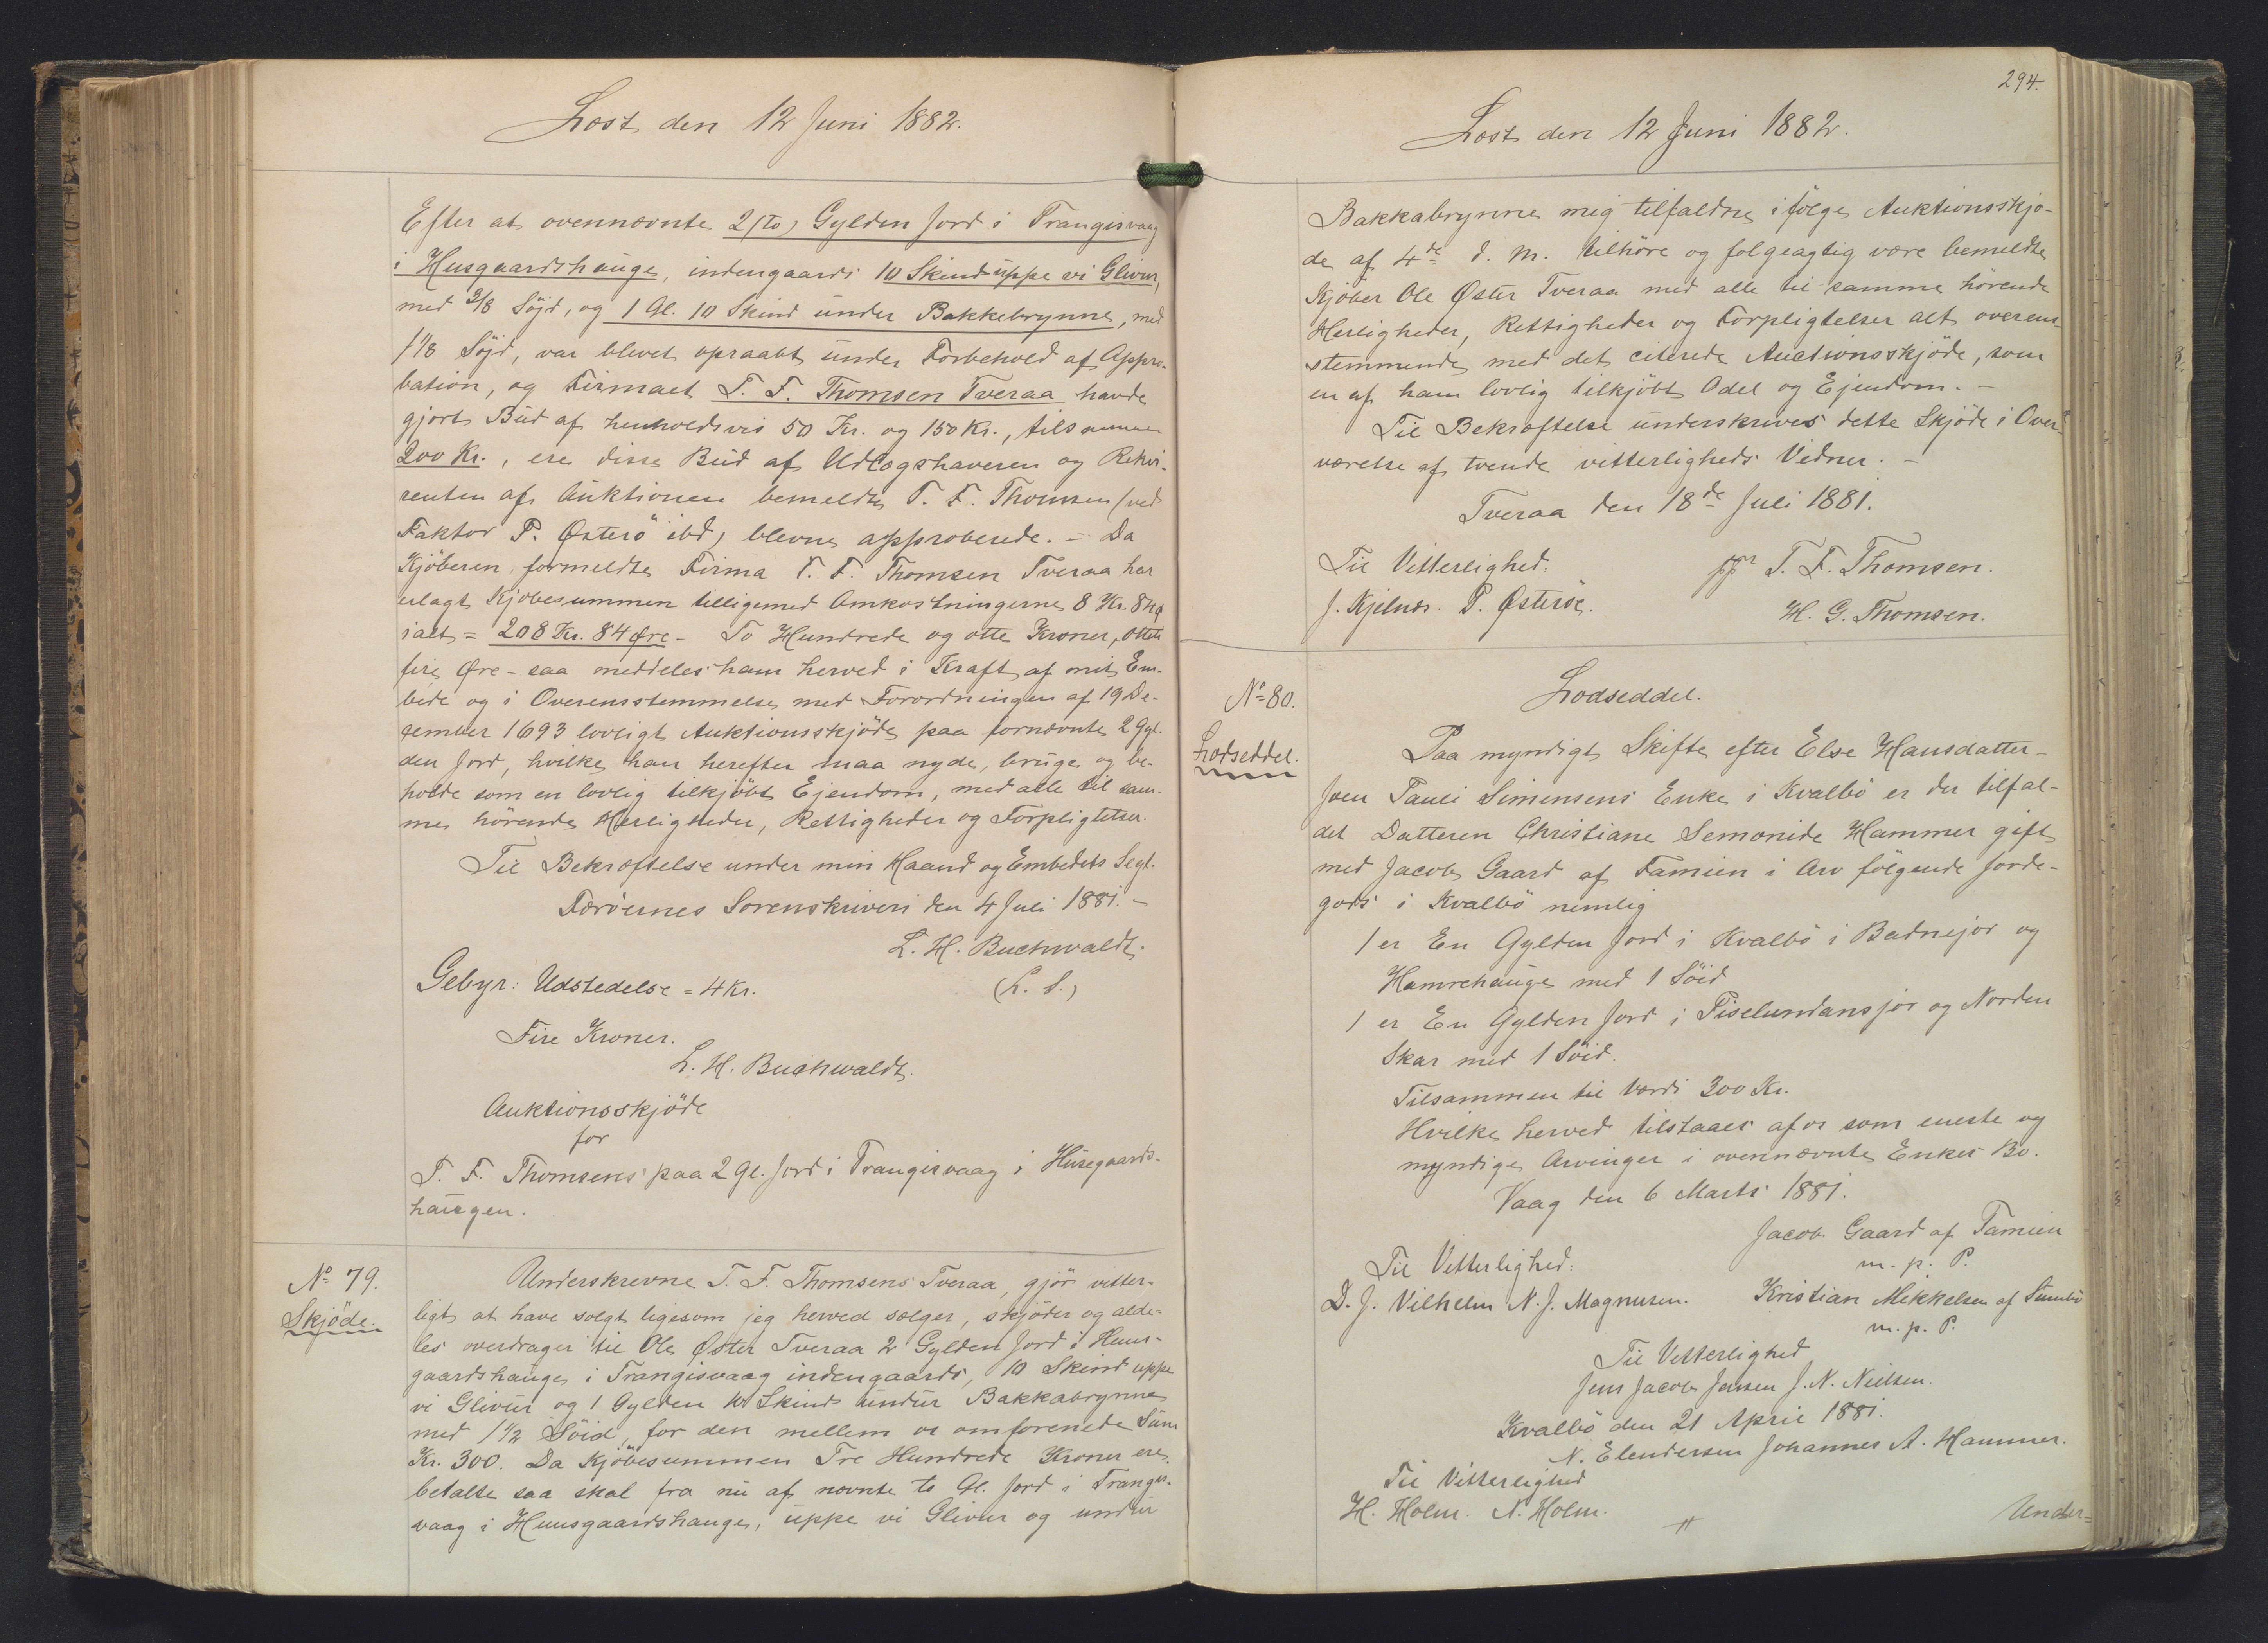 Læst den 12 Juni 1882.
Efter at ovennævnte 2 (to) Gylden Jord i Trangisvaag
i Husgaardshauge, indengaards 10 Skind uppe vi Glivur,
med 3/8 Söjd, og 1 Gl. 10 Skind under Bakkebrynne, med
1 1/8 Söjd, var blevet opraabt under Forbehold af Appro-
bation, og Firmaet T. F. Thomsen Tveraa havde
gjort Bud af henholdsvis 50 Kr. og 150 Kr., tilsammen
200 Kr., ere disse Bud af Udlægshaveren og Rekvi-
renten af Auktionen bemeldte T. F. Thomsen (ved
Faktor P. Österö ibd) blevne approberede. - Da
Kjöberen formeldte Firma T. F. Thomsen Tveraa har
erlagt Kjöbesummen tilligemed Omkostningerne 8 Kr. 84 Ø
ialt = 208 Kr. 84 Øre - To Hundrede og otte Kroner, otteti
fire Øre - saa meddeles ham herved i Kraft af mit Em-
bede og i Overensstemmelse med Forordningen af 19 De-
cember 1693 lovligt Auktionsskjöde paa fornævnte 2 Gyl-
den Jord, hvilke han herefter maa nyde, bruge og be-
holde som en lovlig tilkjöbt Ejendom, med alle til sam-
me hörende Herligheder, Rettigheder og Forpligtelser.
Til Bekræftelse under min Haand og Embedets Segl.
Færöernes Sorenskriveri den 4 Juli 1881. -
L. H. Buchwaldt.
Gebyr: Udstedelse = 4 Kr. (L. S.)
Fire Kroner.
L. H. Buchwaldt.
Auktionsskjöde
for
T. F. Thomsens paa 2 Gl. Jord i Trangisvaag i Husegaards-
haugen.
No 79.
Skjöde.
Underskrevne T. F. Thomsens Tveraa, gjör vitter-
ligt at have solgt ligesom jeg herved sælger, skjöder og alde-
les overdrager til Ole Øster Tveraa 2 Gylden Jord i Huus-
gaardshauge i Trangisvaag indengaards, 10 Skind uppe
vi Glivur og 1 Gylden 10 Skind undur Bakkabrynne
med 1 1/2 Söid, for den mellem os omforenede Sum
Kr. 300. Da Kjöbesummen Tre Hundrede Kroner ere
betalte saa skal fra nu af nævnte to Gl. Jord i Trangis-
vaag i Huusgaardshauge, uppe vi Glivur og undur
294.
Læst den 12 Juni 1882.
Bakkabrynne mig tilfaldne i fölge Auktionsskjö-
de af 4de d. M. tilhöre og fölgeagtig være bemeldte
Kjöber Ole Øster Tveraa med alle til samme hörende
Herligheder, Rettigheder og Forpligtelser alt overens-
stemmende med det citerede Auctionsskjöde, som
en af ham lovlig tilkjöbt Odel og Ejendom. -
Til Bekræftelse underskrives dette Skjöde i Over-
værelse af tvende vitterligheds Vidner. -
Tveraa den 18de Juli 1881.
Til Vitterlighed. ppr T. F. Thomsen.
J. Kjelnæs. P. Österöe. H. G. Thomsen.
No 80.
Lodseddel.
Lodseddel.
Paa myndigt Skifte efter Else Hansdatter -
Joen Pauli Simensens Enke i Kvalbö er der tilfal-
det Datteren Christiane Semonide Hammer gift
med Jacob Gaard af Famien i Arv fölgende Jorde-
gods i Kvalbö nemlig
1 er En Gylden Jord i Kvalbö i Badnejor og
Hamrehauge med 1 Söid
1 er En Gylden Jord i Piselundansjor og Norden
Skar med 1 Söid.
Tilsammen til Værdi 300 Kr.
Hvilke herved tilstaaes af os som eneste og
myndige Arvinger i ovennævnte Enkes Bo.
Vaag den 6 Marts 1881.
Jacob Gaard af Famien
Til Vitterlighed: m. p. P.
D. J. Vilhelm N. J. Magnusen. Kristian Mikkelsen af Sumbö
m. p. P.
Til Vitterlighed
Jens Jacob Jensen J. N. Nielsen.
Kvalbö den 21 April 1881.
N. Elendersen Johannes A. Hammer.
Til Vitterlighed
H. Holm. N. Holm.
Under-